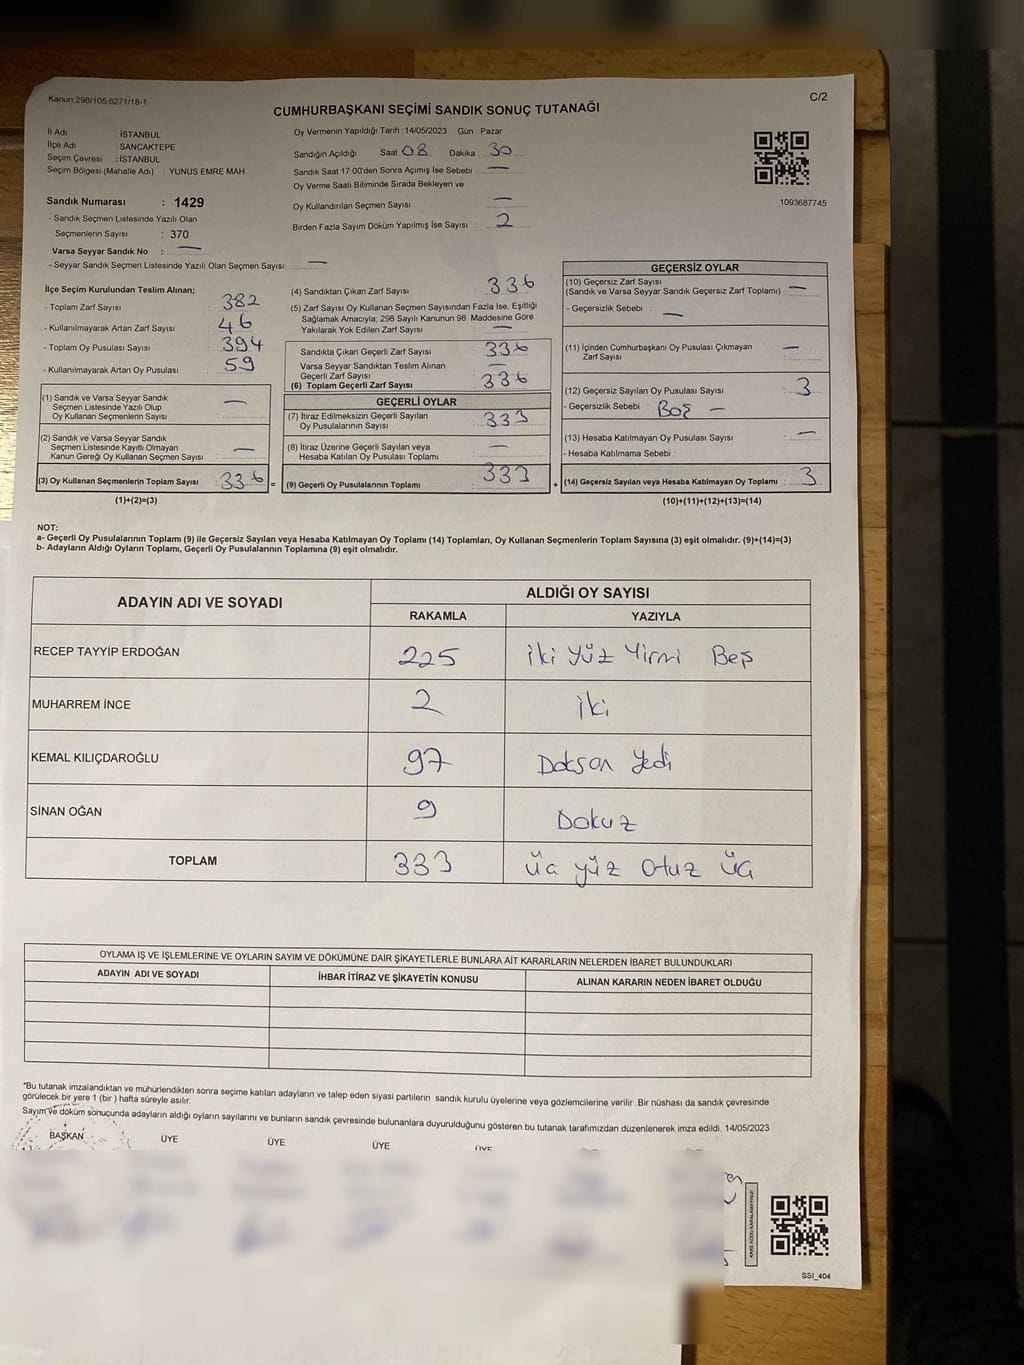 Kanun;298/105;6271/18-1
C/2
CUMHURBAŞKANI SEÇİMİ SANDIK SONUÇ TUTANAĞI
İl Adı : İSTANBUL
İlçe Adı : SANCAKTEPE
Seçim Çevresi : İSTANBUL
Seçim Bölgesi (Mahalle Adı) : YUNUS EMRE MAH
Sandık Numarası : 1429
- Sandık Seçmen Listesinde Yazılı Olan
Seçmenlerin Sayısı : 370
Varsa Seyyar Sandık No : —
- Seyyar Sandık Seçmen Listesinde Yazılı Olan Seçmen Sayısı: —
Oy Vermenin Yapıldığı Tarih : 14/05/2023 Gün : Pazar
Sandığın Açıldığı Saat 08 Dakika : 30
Sandık Saat 17:00'den Sonra Açımış İse Sebebi : —
Oy Verme Saati Bitiminde Sırada Bekleyen ve
Oy Kullandırılan Seçmen Sayısı : —
Birden Fazla Sayım Döküm Yapılmış İse Sayısı : 2
1093687745
İlçe Seçim Kurulundan Teslim Alınan;
- Toplam Zarf Sayısı : 382
- Kullanılmayarak Artan Zarf Sayısı : 46
- Toplam Oy Pusulası Sayısı : 394
- Kullanılmayarak Artan Oy Pusulası : 59
(1) Sandık ve Varsa Seyyar Sandık
Seçmen Listesinde Yazılı Olup
Oy Kullanan Seçmenlerin Sayısı : —
(2) Sandık ve Varsa Seyyar Sandık
Seçmen Listesinde Kayıtlı Olmayan
Kanun Gereği Oy Kullanan Seçmen Sayısı : —
(3) Oy Kullanan Seçmenlerin Toplam Sayısı : 336 =
(1)+(2)=(3)
(4) Sandıktan Çıkan Zarf Sayısı : 336
(5) Zarf Sayısı Oy Kullanan Seçmen Sayısından Fazla İse, Eşitliği
Sağlamak Amacıyla; 298 Sayılı Kanunun 98. Maddesine Göre
Yakılarak Yok Edilen Zarf Sayısı : —
Sandıkta Çıkan Geçerli Zarf Sayısı : 336
Varsa Seyyar Sandıktan Teslim Alınan
Geçerli Zarf Sayısı : —
(6) Toplam Geçerli Zarf Sayısı : 336
GEÇERLİ OYLAR
(7) İtiraz Edilmeksizin Geçerli Sayılan
Oy Pusulalarının Sayısı : 333
(8) İtiraz Üzerine Geçerli Sayılan veya
Hesaba Katılan Oy Pusulası Toplamı : —
(9) Geçerli Oy Pusulalarının Toplamı : 333 +
GEÇERSİZ OYLAR
(10) Geçersiz Zarf Sayısı
(Sandık ve Varsa Seyyar Sandık Geçersiz Zarf Toplamı) : —
- Geçersizlik Sebebi : —
(11) İçinden Cumhurbaşkanı Oy Pusulası Çıkmayan
Zarf Sayısı : —
(12) Geçersiz Sayılan Oy Pusulası Sayısı : 3
- Geçersizlik Sebebi : Boş —
(13) Hesaba Katılmayan Oy Pusulası Sayısı : —
- Hesaba Katılmama Sebebi :
(14) Geçersiz Sayılan veya Hesaba Katılmayan Oy Toplamı : 3
(10)+(11)+(12)+(13)=(14)
NOT:
a- Geçerli Oy Pusulalarının Toplamı (9) ile Geçersiz Sayılan veya Hesaba Katılmayan Oy Toplamı (14) Toplamları, Oy Kullanan Seçmenlerin Toplam Sayısına (3) eşit olmalıdır. (9)+(14)=(3)
b- Adayların Aldığı Oyların Toplamı, Geçerli Oy Pusulalarının Toplamına (9) eşit olmalıdır.
ADAYIN ADI VE SOYADI
ALDIĞI OY SAYISI
RAKAMLA YAZIYLA
RECEP TAYYİP ERDOĞAN 225 iki yüz Yirmi Beş
MUHARREM İNCE 2 iki
KEMAL KILIÇDAROĞLU 97 Doksan yedi
SİNAN OĞAN 9 Dokuz
TOPLAM 333 üç yüz Otuz üç
OYLAMA İŞ VE İŞLEMLERİNE VE OYLARIN SAYIM VE DÖKÜMÜNE DAİR ŞİKAYETLERLE BUNLARA AİT KARARLARIN NELERDEN İBARET BULUNDUKLARI
ADAYIN ADI VE SOYADI İHBAR İTİRAZ VE ŞİKAYETİN KONUSU ALINAN KARARIN NEDEN İBARET OLDUĞU
*Bu tutanak imzalandıktan ve mühürlendikten sonra seçime katılan adayların ve talep eden siyasi partilerin sandık kurulu üyelerine veya gözlemcilerine verilir .Bir nüshası da sandık çevresinde
görülecek bir yere 1 (bir ) hafta süreyle asılır.
Sayım ve döküm sonuçunda adayların aldığı oyların sayılarını ve bunların sandık çevresinde bulunanlara duyurulduğunu gösteren bu tutanak tarafımızdan düzenlenerek imza edildi. 14/05/2023
BAŞKAN ÜYE ÜYE ÜYE ÜYE
SSI_404